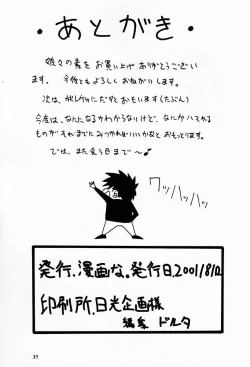 ・あとがき・
娘々の素をお買い上げありがとうござい
ます。今後ともよろしくおねがいします。
次は、秋レヴォにだすとおもいます(たぶん)
今度は、なんになるかわからないけど、なにかハマれる
ものがそれまでにみつかればいいかなとおもっとります。
では、また会う日まで〜♪
ワッハッハッ
発行.漫画な。発行日.2001/8/12
印刷所.日光企画様
編集 ドルタ
37